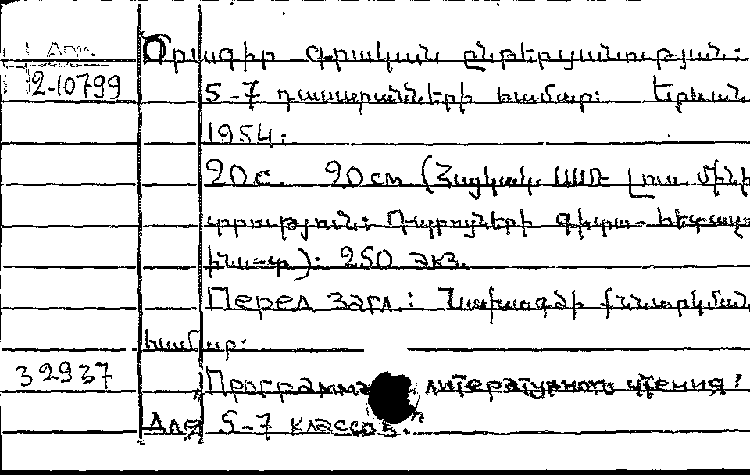 Арм.
2-10799
Ծրագիր գրական ընթերցանության:
5-7 դասարանների համար: Երևան,
1954:
20с. 20см (Հայկակ. ՍՍՌ Լուս. մինի
տրություն: Դպրոցների գիտա-հետազո
ինս-տ): 250 экз.
Перед загл.: Նախագծի քննարկման
համար:
32937
Программа литературного чтения!
Для 5-7 классов."